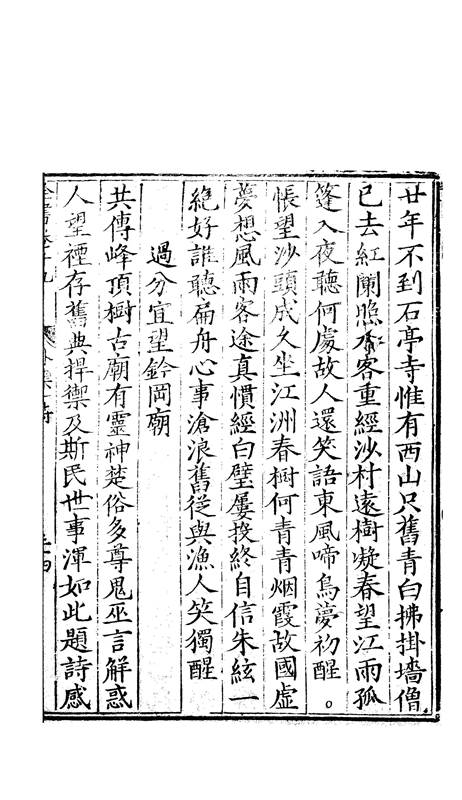 廿年不到石亭寺惟有西山只舊青白拂掛墻僧
已去紅闌照水客重經沙村遠樹凝春望江雨孤
篷入夜聽何處故人還笑語東風啼鳥夢初醒。
悵望沙頭成久坐江洲春樹何青青烟霞故國虛
夢想風雨客途真慣經白璧屢投終自信朱絃一
絶好誰聽扁舟心事滄浪舊從與漁人笑獨醒
過分宜望鈐岡廟
共傳峰頂樹古廟有靈神楚俗多尊鬼巫言解惑
人望禋存舊典捍禦及斯民世事渾如此題詩感